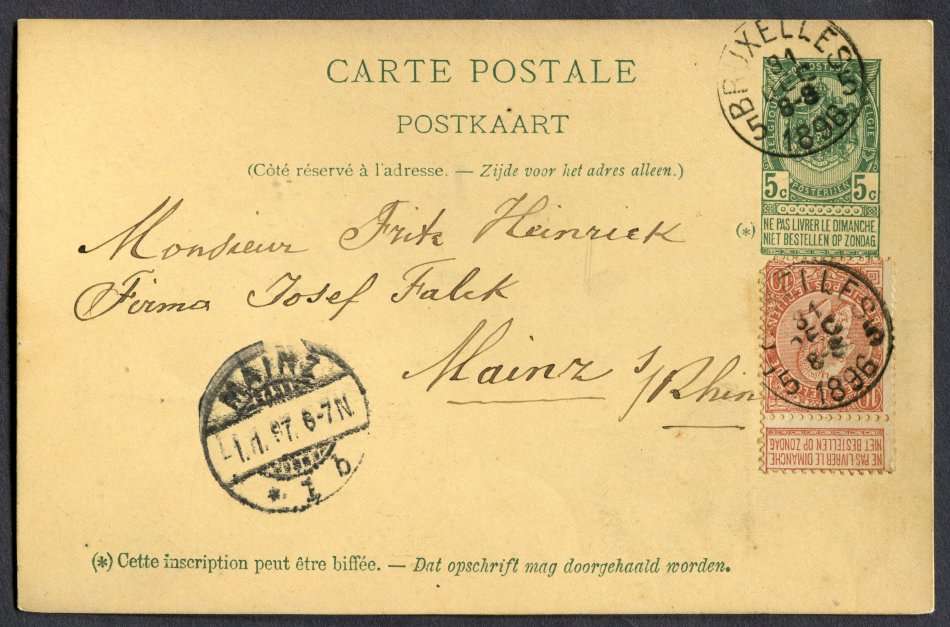 CARTE POSTALE
POSTKAART
(Côté réservé à l'adresse. — Zijde voor het adres alleen.)
BRUXELLES 5
31
DEC
8-S
1896
5
BELGIQUE POSTES BELGIË
5c POSTERIJEN 5c
(*)
NE PAS LIVRER LE DIMANCHE.
NIET BESTELLEN OP ZONDAG.
Monsieur Fritz Heinrich
Firma Josef Falck
Mainz s/Rhin
BRUXELLES 5
31
DEC
8
1896
5
10 10
NE PAS LIVRER LE DIMANCHE
NIET BESTELLEN OP ZONDAG
MAINZ
1.1.97. 6-7N.
* 1 b
(*) Cette inscription peut être biffée. — Dat opschrift mag doorgehaald worden.